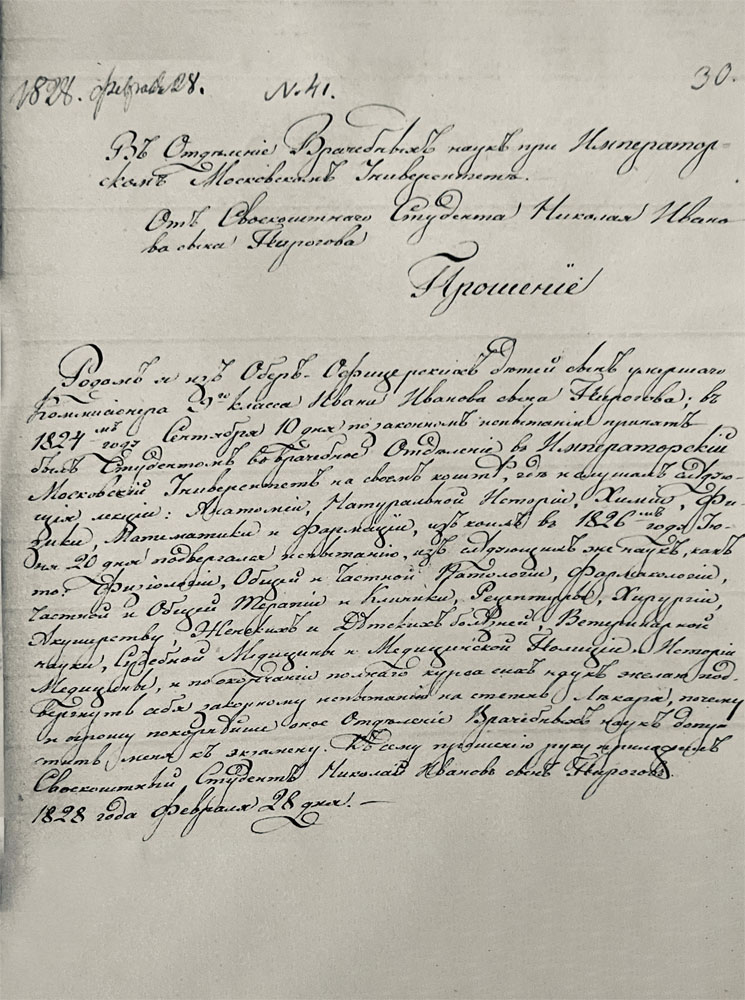 1828. февраля 28. №. 41. 30.
Въ Отдѣленіе Врачебныхъ наукъ при Император-
скомъ Московскомъ Университетѣ.
Отъ Своекоштнаго Студента Николая Ивано
ва сына Пирогова
Прошеніе
Родомъ я изъ Оберъ-Офицерскихъ дѣтей сынъ умершаго
Коммисіонера 9го класса Ивана Иванова сына Пирогова; въ
1824мъ году Сентября 10 дня по законномъ испытаніи принятъ
былъ Студентомъ во врачебное Отдѣленіе въ Императорскій
Московскій Университетъ на своемъ коштѣ, гдѣ и слушалъ слѣдую-
щія лекціи: Анатоміи, Натуральной Исторіи, Химіи, Фи-
зики, Математики и Фармаціи, изъ коихъ въ 1826мъ года Ію-
ня 20 дня подвергался испытанію, изъ слѣдующихъ же наукъ, какъ
то: Физіологіи, Общей и Частной Патологіи, Фармакологіи,
Частной и Общей Терапіи и Клиники, Рецептуры, Хирургіи,
Акушерству, Женскихъ и Дѣтскихъ болѣзней, Ветеринарной
науки, Судебной Медицины и Медицинской Полиціи и Исторіи
Медицины, и по окончаніи полнаго курса сихъ наукъ желаю под-
вергнуть себя законному испытанію на степень Лѣкаря, почему
и прошу покорнѣйше оное Отдѣленіе Врачебныхъ наукъ допус
тить меня къ экзамену. Къ сему прошенію руку приложилъ
Своекоштный Студентъ Николай Ивановъ сынъ Пироговъ.
1828 года Февраля 28 дня. —